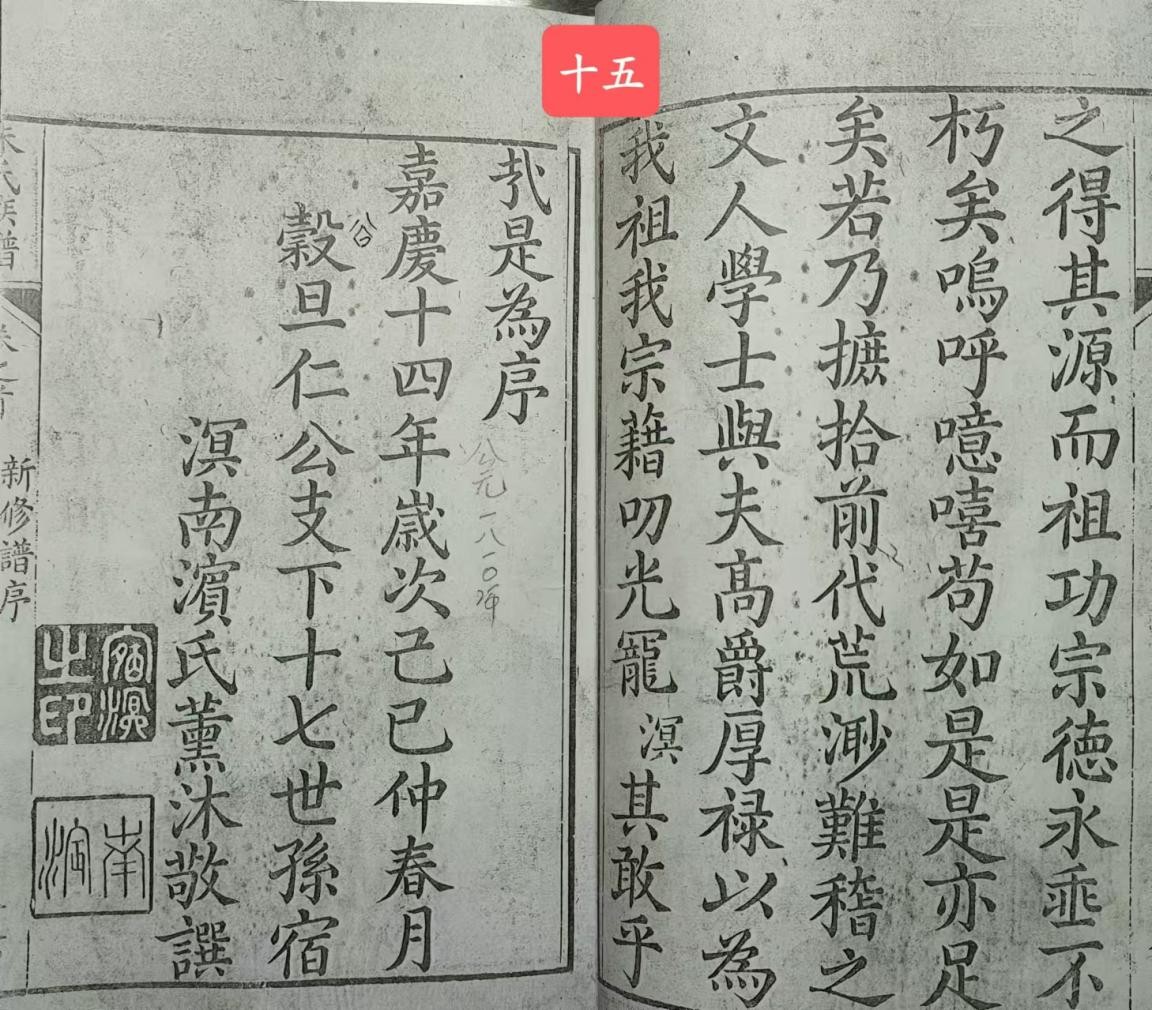 十五
之得其源而祖功宗德永垂不
朽矣嗚呼噫嘻苟如是是亦足
矣若乃摭拾前代荒渺難稽之
文人學士與夫高爵厚禄以為
我祖我宗藉叨光寵溟其敢乎
哉是為序
公元一八一〇年
嘉慶十四年歲次己巳仲春月
穀旦仁公支下十七世孫宿
溟南濱氏薰沐敬譔
之印
南溟
氏族譜
新修譜序